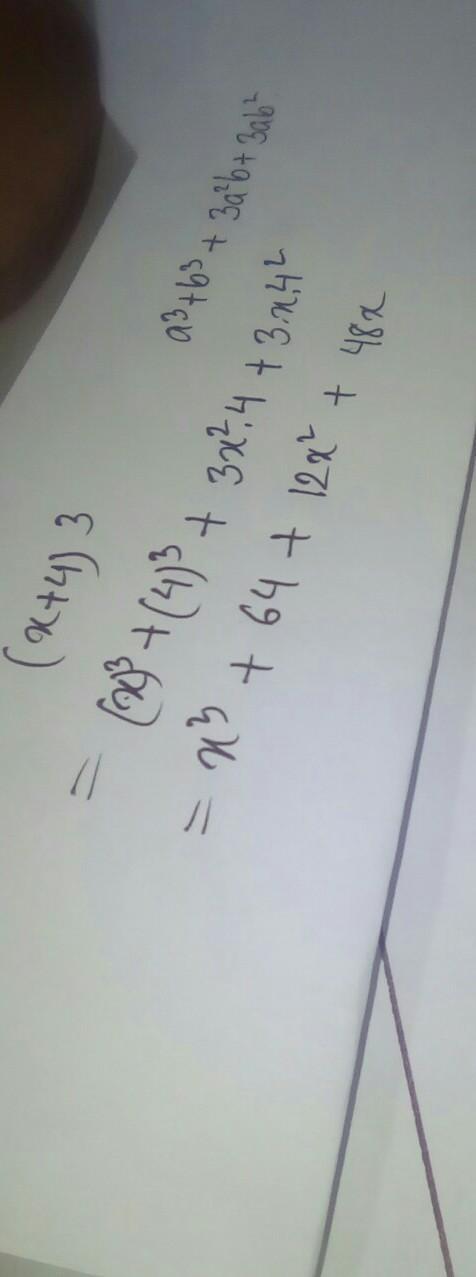 (x+4) 3
a³+b³ + 3a²b + 3ab²
= (x)³ + (4)³ + 3x².4 + 3.x.4²
= x³ + 64 + 12x² + 48x